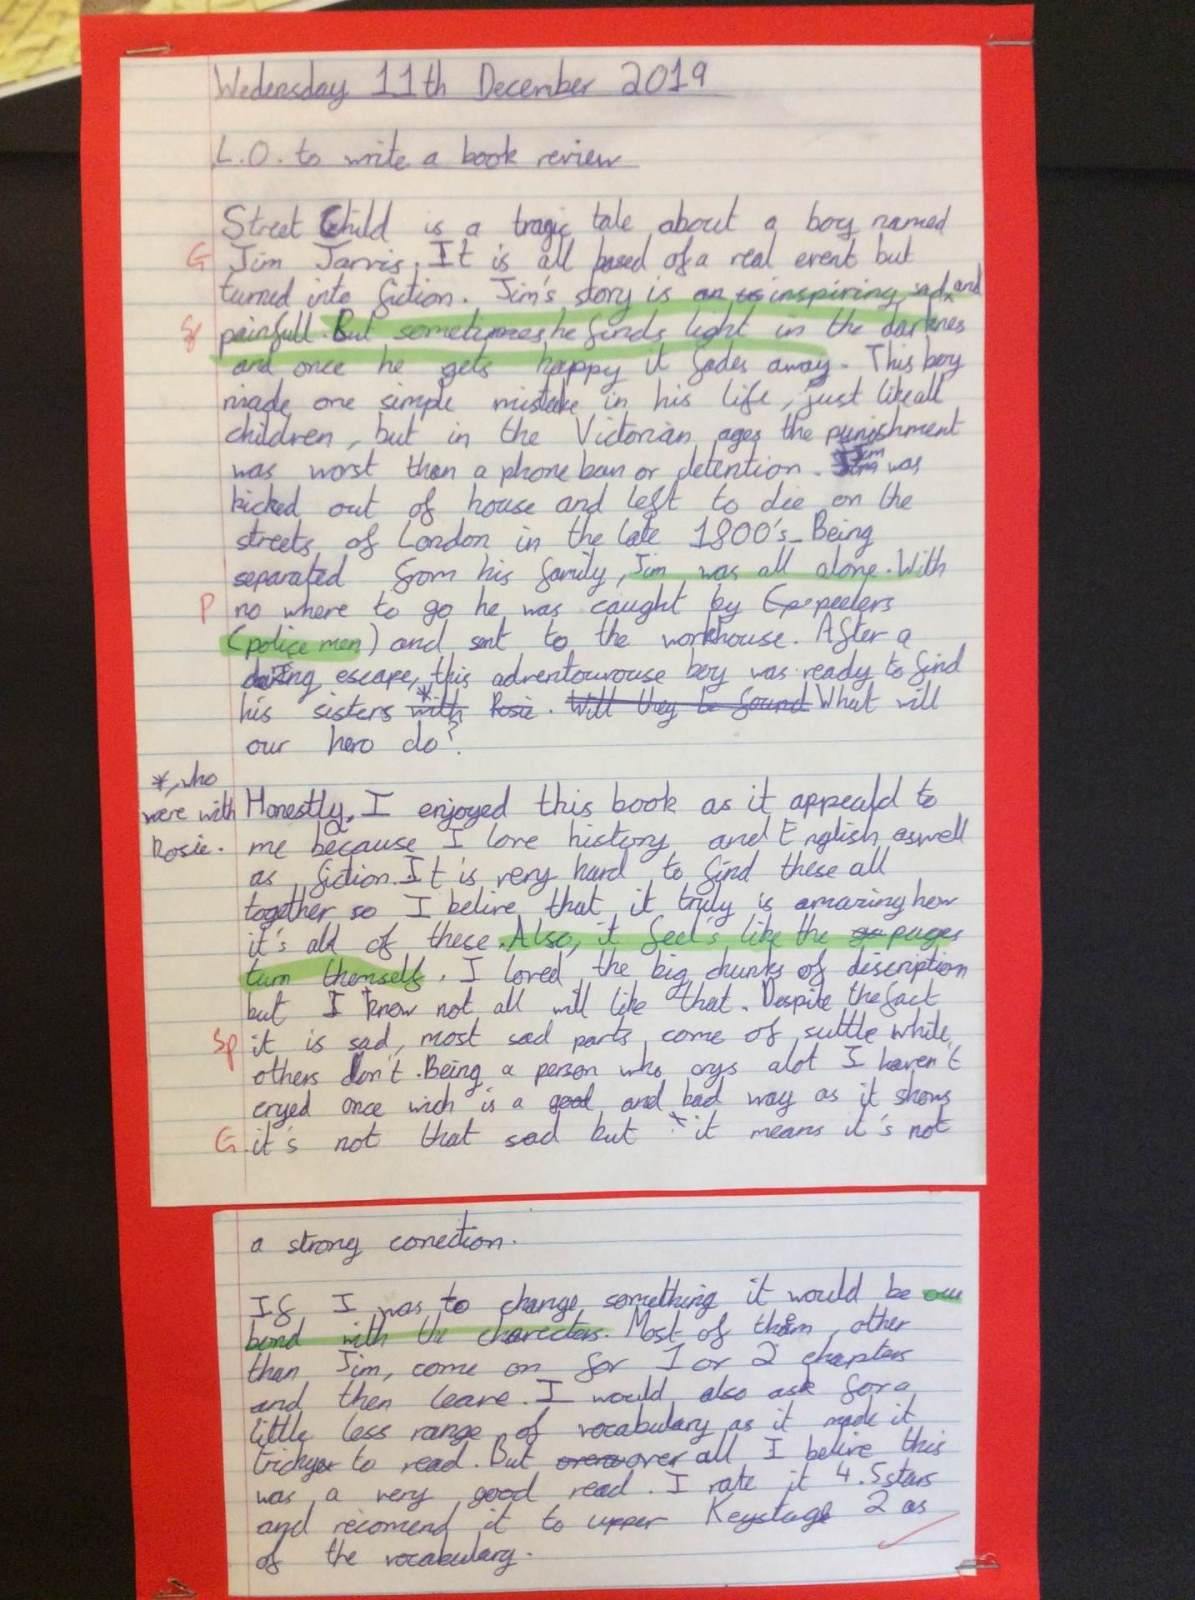 Wedensday 11th December 2019
L.O. to write a book review
Street Child is a tragic tale about a boy named
G Jim Jarvis. It is all based of a real event but
turned into fiction. Jim's story is inspiring, sad, and
Sp painfull. But sometymes he finds light in the darknes
and once he gets happy it fades away. This boy
made one simple mistake in his life, just like all
children, but in the Victorian ages the punishment
was worst than a phone ban or detention. Jim was
kicked out of house and left to die on the
streets of London in the late 1800's. Being
separated from his family, Jim was all alone. With
P no where to go he was caught by peelers
(police men) and sent to the workhouse. After a
daring escape, this adventourouse boy was ready to find
his sisters * with Rosie. Will they be found What will
our hero do?
*, who
were with
Rosie.
Honestly, I enjoyed this book as it appeald to
me because I love history and English aswell
as fiction. It is very hard to find these all
together so I belive that it truly is amazing how
it's all of these. Also, it feel's like the pages
turn themself. I loved the big chunks of discription
but I know not all will like that. Despite the fact
Sp it is sad, most sad parts come of suttle while
others don't. Being a person who crys alot I haven't
cryed once wich is a good and bad way as it shows
G it's not that sad but it means it's not
a strong conection.
If I was to change something it would be our
bond with the charecters. Most of them, other
than Jim, come on for 1 or 2 chapters
and then leave. I would also ask for a
little less range of vocabulary as it made it
trickyer to read. But over all I belive this
was a very good read. I rate it 4.5 stars
and recomend it to upper Keystage 2 as
of the vocabulary.